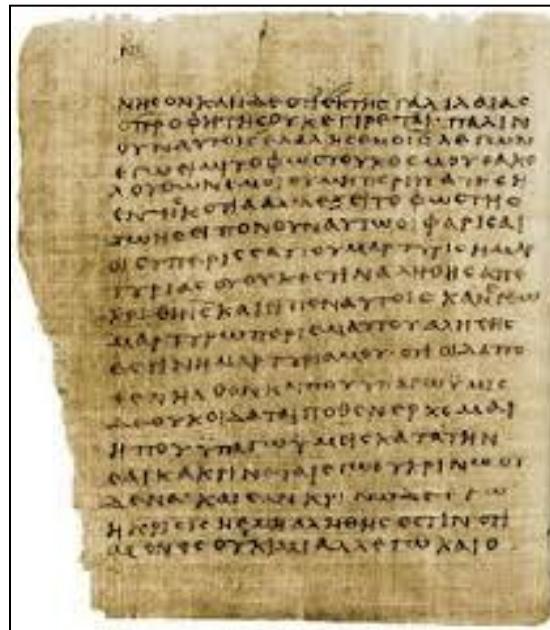 ΝΗϹΟΝΚΑΙΙΔΕΟΤΙΕΚΤΗϹΓΑΛΙΛΑΙΑϹ
ΟΠΡΟΦΗΤΗϹΟΥΚΕΓΙΡΕΤΑΙ·ΠΑΛΙΝ
ΟΥΝΑΥΤΟΙϹΕΛΑΛΗϹΕΝΟΙϹΛΕΓΩΝ
ΕΓΩΕΙΜΙΤΟΦΩϹΤΟΥΚΟϹΜΟΥΟΑΚΟ
ΛΟΥΘΩΝΕΜΟΙΟΥΜΗΠΕΡΙΠΑΤΗϹΗ
ΕΝΤΗϹΚΟΤΙΑΑΛΛΕΞΕΙΤΟΦΩϹΤΗϹ
ΖΩΗϹΕΙΠΟΝΟΥΝΑΥΤΩΟΙΦΑΡΙϹΑΙ
ΟΙϹΥΠΕΡΙϹΕΑΥΤΟΥΜΑΡΤΥΡΙϹΗΜΑΡ
ΤΥΡΙΑϹΟΥΟΥΚΕϹΤΙΝΑΛΗΘΗϹΑΠΕ
ΚΡΙΘΗΙϹΚΑΙΕΙΠΕΝΑΥΤΟΙϹΚΑΝΕΓΩ
ΜΑΡΤΥΡΩΠΕΡΙΕΜΑΥΤΟΥΑΛΗΘΗϹ
ΕϹΤΙΝΗΜΑΡΤΥΡΙΑΜΟΥ·ΟΤΙΟΙΔΑΠΟ
ΘΕΝΗΛΘΟΝΚΑΙΠΟΥΥΠΑΓΩΫΜΙϹ
ΔΕΟΥΚΟΙΔΑΤΑΙΠΟΘΕΝΕΡΧΟΜΑΙ
ΗΠΟΥΫΠΑΓΩΫΜΕΙϹΚΑΤΑΤΗΝ
ϹΑΡΚΑΚΡΙΝΕΤΑΙΕΓΩΟΥΚΡΙΝΩΟΥ
ΔΕΝΑ·ΚΑΙΕΑΝΚΡΙΝΩΔΕΕΓΩ
ΗΚΡΙϹΙϹΗΕΜΗΑΛΗΘΗϹΕϹΤΙΝΟΤΙ
ΜΟΝΟϹΟΥΚΙΜΙΑΛΛΕΓΩΚΑΙΟ